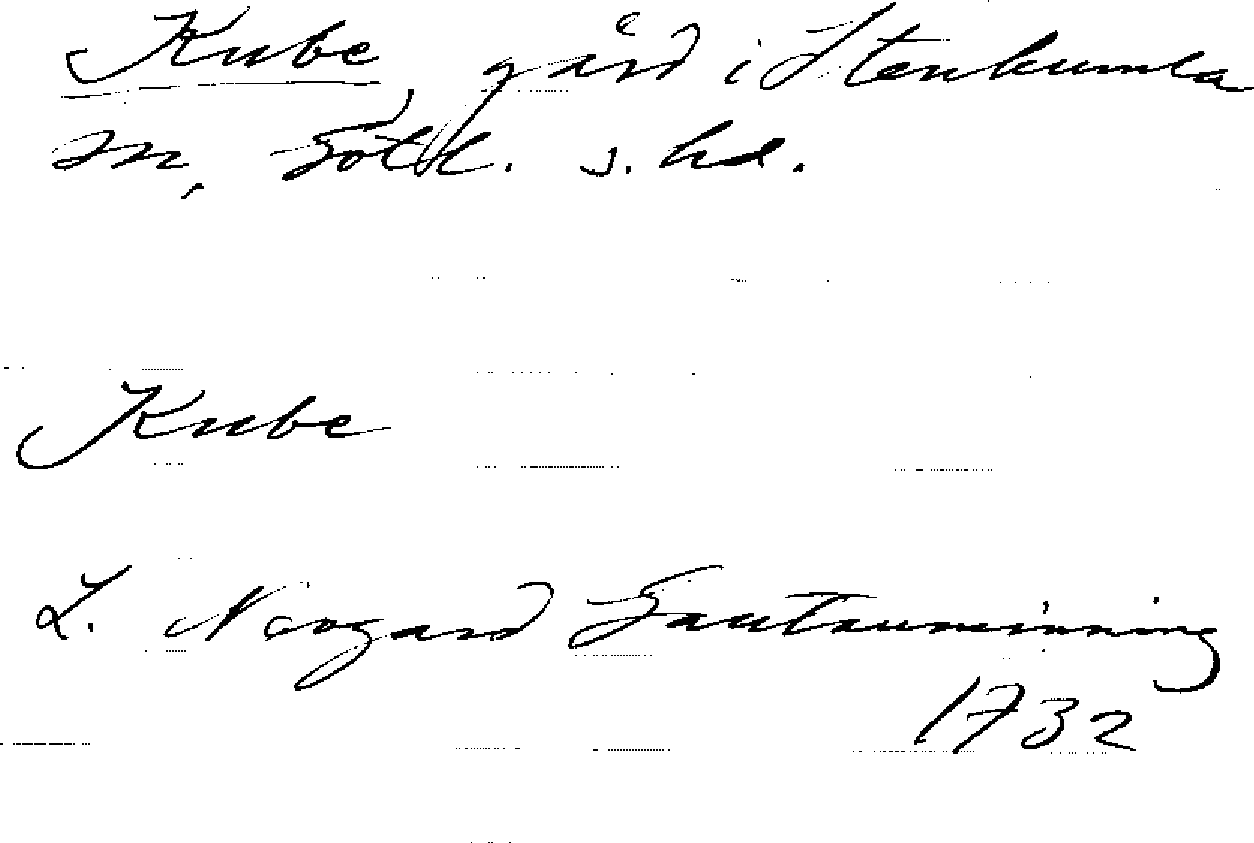 Kube, gård i Stenkumla
sn, Gotl. s. hd.
Kube
L. Norgard Gautauminning
1732